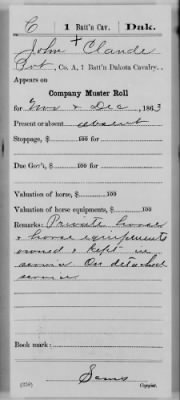 C | 1 Batt'n Cav. | Dak.
John + Claude
Pvt, Co. A, 1 Batt'n Dakota Cavalry.
Appears on
Company Muster Roll
for Nov & Dec, 1863
Present or absent absent
Stoppage, $ 100 for
Due Gov't, $ 100 for
Valuation of horse, $ 100
Valuation of horse equipments, $ 100
Remarks: Private horse
& horse equipments
owned & kept in
service On detached
service
Book mark:
(358)
Copyist.